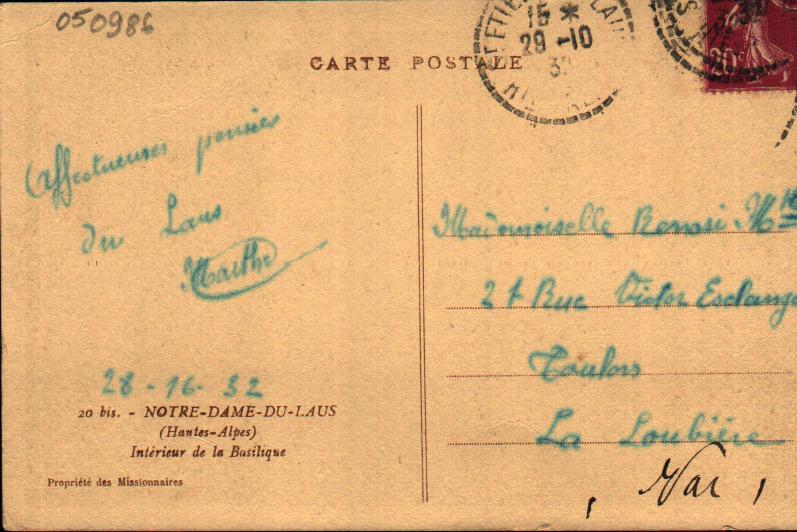 050986
CARTE POSTALE
15 *
29 -10
32
20c
Affectueuses pensées
du Laus
Marthe
28-10-32
20 bis. - NOTRE-DAME-DU-LAUS
(Hautes-Alpes)
Intérieur de la Basilique
Propriété des Missionnaires
Mademoiselle
Rue Victor Esclangon
Toulon
La Loubière
Var